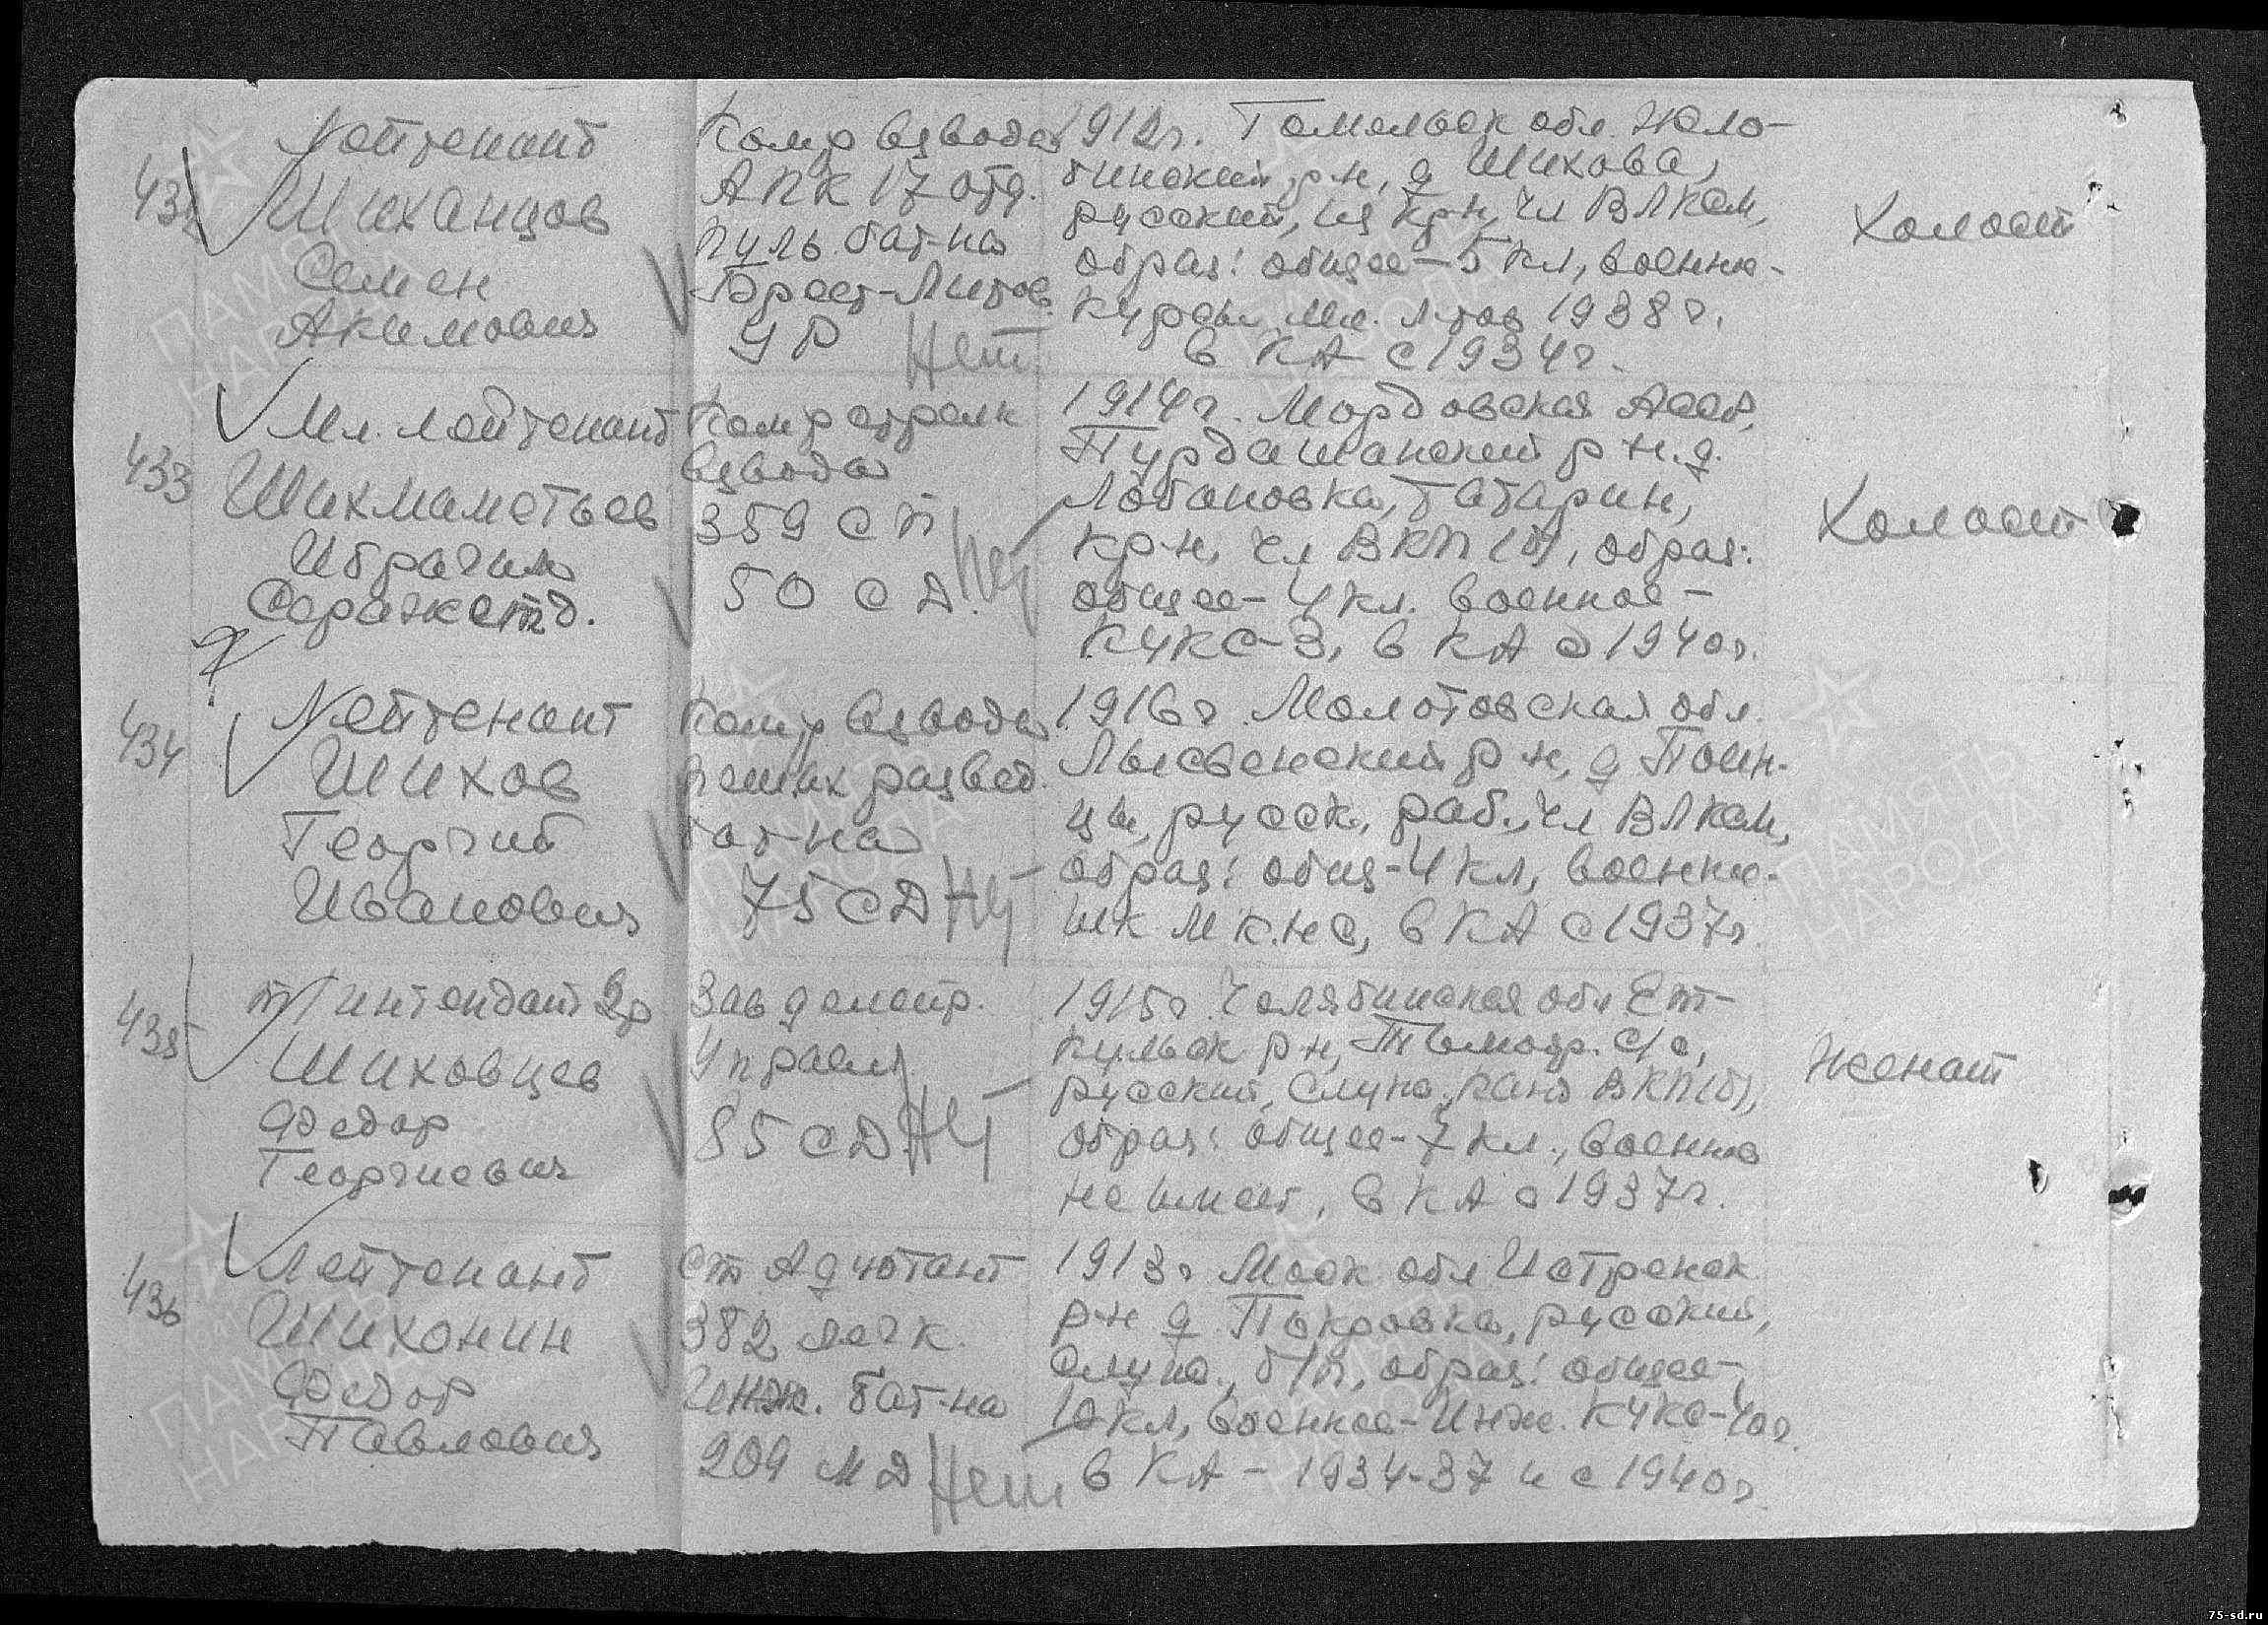 432
Лейтенант
Шиханцов
Семен
Акимович
Ком-р взвода
АПК 17 отд.
пуль. бат-на
Брест-Литов.
УР Нет
1912г. Гомельск обл. Жло-
бинский р-н, д Шихова,
русский, из кр-н, чл ВЛКСМ,
образ: общее - 5 кл, военно-
курсы мл. л-тов 1938г.
в КА с 1934г.
Холост
433
Мл. лейтенант
Шихмаметьев
Ибрагим
Ком-р стрелк
взвода
359 СП
50 СД. Нет
1914г. Мордовская АССР,
Пурдошанский р-н. д.
Лобановка, татарин,
кр-н, чл ВКП(б), образ:
общее - 4 кл. военное -
КУКС-3, в КА с 1940г.
Холост
434
Лейтенант
Шихов
Георгий
Иванович
Ком-р взвода
развед.
бат-на
75 СД Нет
1916г. Молотовская обл.
Лысьвенский р-н, д
русск, раб., чл ВЛКСМ,
образ: общ - 4 кл, военно-
шк М К.Н.С, в КА с 1937г.
435
т/интендант 2р
Шиховцев
Федор
Георгиевич
Зав делопр.
Управл.
85 СД Нет
1915г. Челябинская обл Ет-
кульск р-н, с/с,
русский, служ., канд ВКП(б),
образ: общее - 7 кл., военно
не имеет, в КА с 1937г.
Женат
436
Лейтенант
Шихонин
Федор
Павлович
Ст Адъютант
382 легк.
инж. бат-на
209 МД Нет
1913г Моск обл Истренск
р-н д Покровка, русский,
служ., б/п, образ: общее-
10 кл, военное - Инж. КУКС-40г.
в КА - 1934-37 и с 1940г.
ПАМЯТЬ
НАРОДА
75-sd.ru